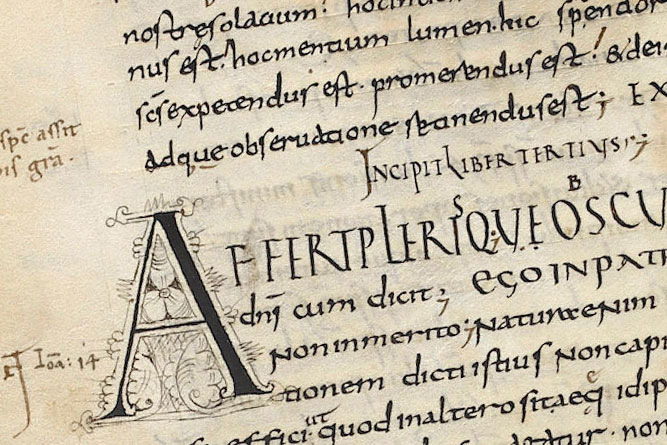 nostrę solacium. hoc
nus est. hoc mentium lumen. hic splendor
scs̄ expetendus est. promerendus est! & dei
adque observatione retinendus est; EX
spc̄ assit
is grā.
INCIPIT LIBER TERTIUS;
AFFERT PLERISQUE OBSCU
dnī cum dicit; EGO IN PATR
Non inmerito; Naturae enim
Ioā: 14
tionem dicti istius Non capi
effici ut quod in altero sit aeq idip
non